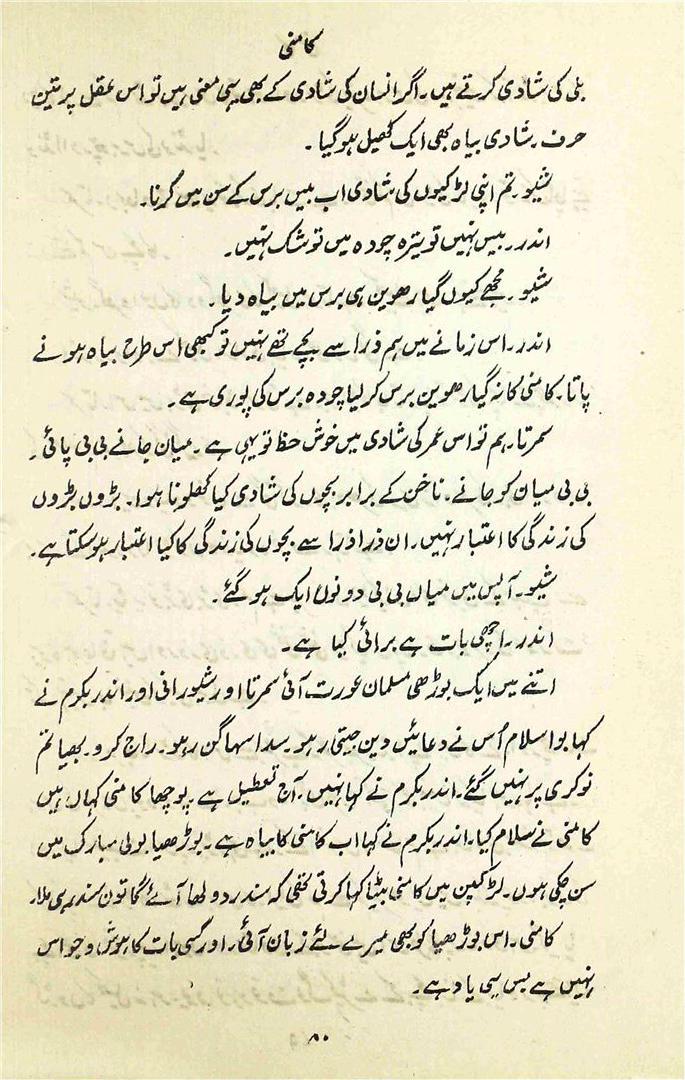 کامنی
بلی کی شادی کرتے ہیں۔ اگر انسان کی شادی کے بھی یہی معنی ہیں تو اس عقل پر تین
حرف۔ شادی بیاہ بھی ایک کھیل ہو گیا۔
شیو۔ تم اپنی لڑکیوں کی شادی اب بیس برس کے سن میں کرنا۔
اندر۔ بیس نہیں تو تیرہ چودہ میں تو شک نہیں۔
شیو۔ مجھے کیوں گیارھویں ہی برس میں بیاہ دیا۔
اندر۔ اس زمانے میں ہم ذرا سے بچے تھے نہیں تو کبھی اس طرح بیاہ ہونے نے
پاتا۔ کامنی کا نہ گیارھویں برس کر لیا چودہ برس کی پوری ہے۔
سمرتا۔ ہم تو اس عمر کی شادی میں خوش حظ تو یہی ہے۔ میاں جانے بی بی پائی۔
بی بی میاں کو جانے۔ ناخن کے برابر بچوں کی شادی کیا کھلونا ہوا۔ بڑوں بڑوں
کی زندگی کا اعتبار نہیں۔ ان ذرا ذرا سے بچوں کی زندگی کا کیا اعتبار ہو سکتا ہے۔
شیو۔ آپس میں میاں بی بی دونوں ایک ہو گئے۔
اندر۔ اچھی بات ہے برائی کیا ہے۔
اتنے میں ایک بوڑھی مسلمان عورت آئی سمرتا اور شیورانی اور اندر بکرم نے
کہا بوا سلام اُس نے دعائیں دیں جیتی رہو۔ سدا سہاگن رہو۔ راج کرو۔ بھیا تم
نوکری پر نہیں گئے۔ اندر بکرم نے کہا نہیں۔ آج تعطیل ہے۔ پوچھا کامنی کہاں ہیں
کامنی نے سلام کیا۔ اندر بکرم نے کہا اب کامنی کا بیاہ ہے۔ بوڑھیا بولی مبارک میں
سن چکی ہوں۔ لڑکپن میں کامنی بیٹیا کہا کرتی تھی کہ سندر دولھا آئے گا تون سندری ملا۔
کامنی۔ اس بوڑھیا کو بھی میرے لئے زبان آئی۔ اور کسی بات کا ہوش و حواس
نہیں ہے بس یہی یاد ہے۔
۸۰